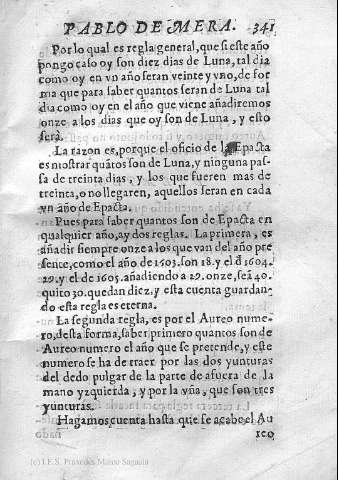 PABLO DE MERA. 341
Por lo qual es regla general, que si este año
pongo caso oy son diez dias de Luna, tal dia
como oy en vn año seran veinte y vno, de for
ma que para saber quantos seran de Luna tal
dia como oy en el año que viene añadiremos
onze a los dias que oy son de Luna, y esto
será.
La razon es, porque el oficio de la Epacta
es mostrar quãtos son de Luna, y ninguna pas-
sa de treinta dias, y los que fueren mas de
treinta, o no llegaren, aquellos seran en cada
vn año de Epacta.
Pues para saber quantos son de Epacta en
qualquier año, ay dos reglas. La primera, es
añadir siempre onze a los que van del año pre
sente, como el año de 1503. son 18. y el d̃ 1604.
29. y el de 1605. añadiendo a 29. onze, seã 40.
quito 30. quedan diez, y esta cuenta guardan-
do esta regla es eterna.
La segunda regla, es por el Aureo nume-
ro, desta forma, saber primero quantos son de
Aureo numero el año que se pretende, y este
numero se ha de traer por las dos yunturas
del dedo pulgar de la parte de afuera de la
mano yzquierda, y por la vña, que son tres
yunturas.
Hagamos cuenta hasta que se acabe el Au
reo
(c) I.E.S. Práxedes Mateo Sagasta